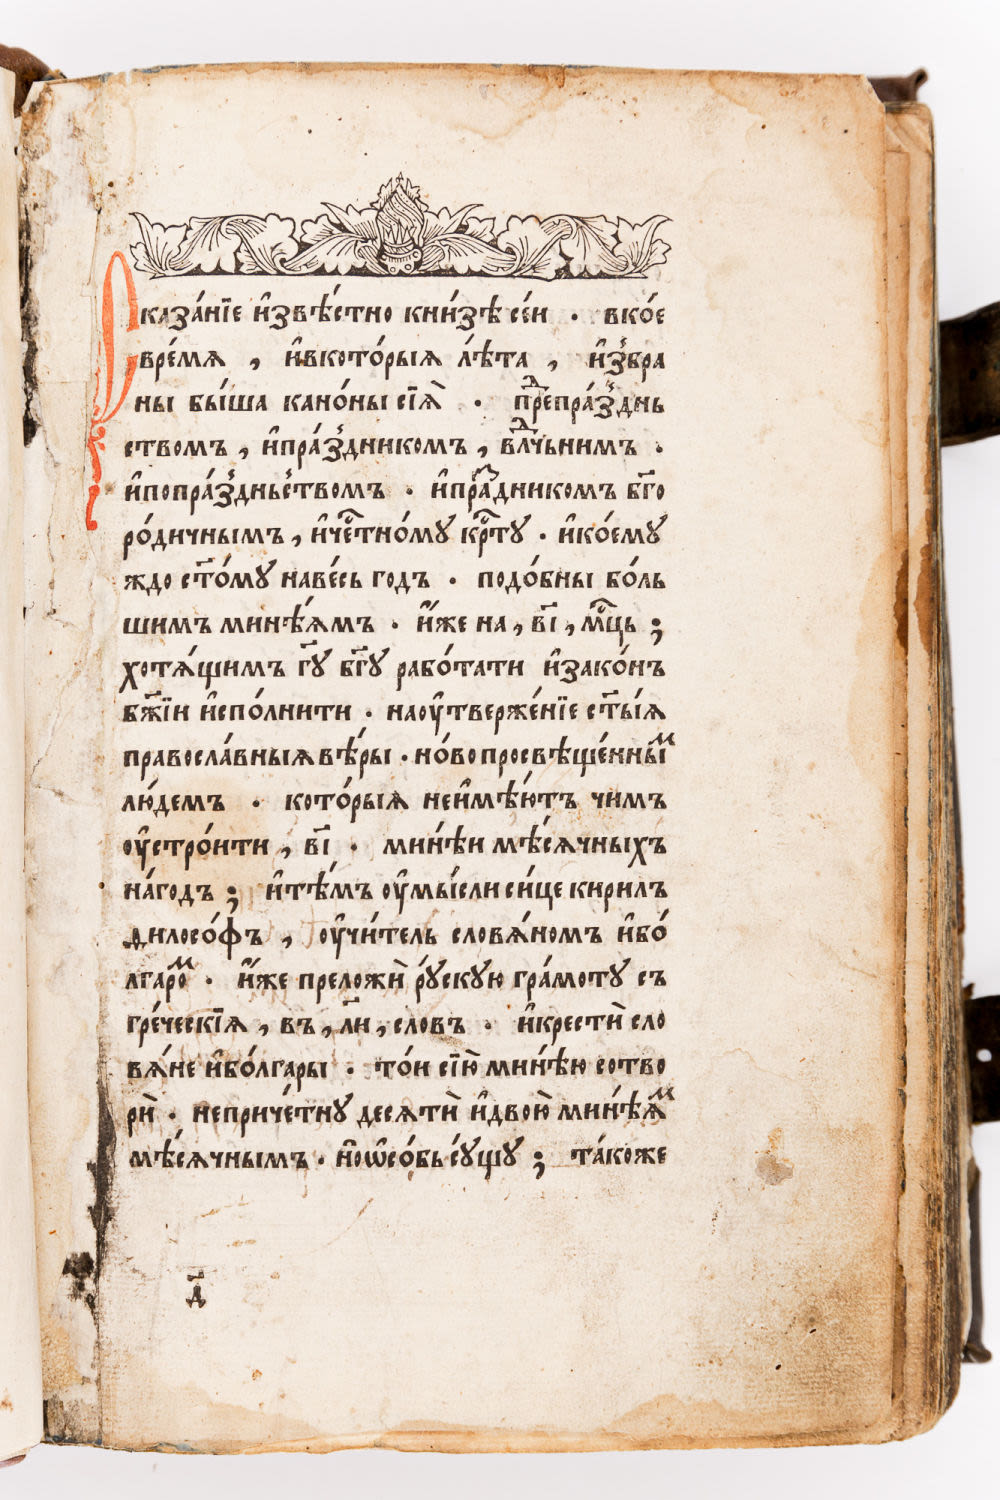 Сказа́нїе и҆звѣ́стно кни́зѣ се́и · вко́е
вре́мѧ , и҆вкото́рыѧ лѣ́та , и҆зⸯбра
ны бы́ша кано́ны сїѧ̀ · преⷣпра́зⸯднь
ством , и҆пра́зⸯдником , влⷣчьним ·
и҆попра́зⸯдньⸯством · и҆пра́зⷣником бг҃о
ро́дичным , и҆чⷭ҇тно́му крⷭ҇ту · и҆ко́ему
ждо ст҃о́му наве́сь год · подо́бны бо́ль
шимъ минѣ́ѧмъ · и҆́же на , в҃і , мⷭ҇ць ;
хотѧ́щимъ гд҃у бг҃у рабо́тати и҆зако́нъ
бж҃їи и҆спо́лнити · наоу҆тверже́нїе ст҃ы́ѧ
правосла́вныѧ вѣ́ры · но́вопросвѣще́нныⷨ
лю́демъ · кото́рыѧ неи҆мѣ́ютъ чимъ
оу҆стро́ити , в҃і · мине́и мѣ́сѧчныхъ
на́годъ ; и҆тѣ́мъ оу҆мы́сли си́це кирилъ
филосо́фъ , оу҆чи́тель словѧ́номъ и҆бо́
лгароⷨ · и҆́же преложѝ ру́скую гра́моту съ
гре́ческїѧ , въ , л҃и , словъ · и҆крестѝ сло
вѧ́не и҆бо́лгары · то́и сїю̀ мине́ю сотво
рѝ · неприче́тну десѧтѝ и҆двою̀ мине́ѧⷨ
мѣ́сѧчнымъ · но҆ѡ҆со́бь су́щу ; та́коже
д҃